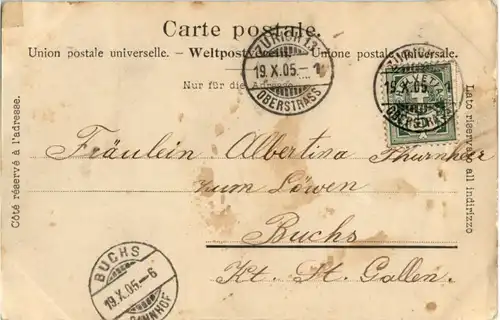 Carte postale.
Union postale universelle. – Weltpostverein. – Unione postale universale.
Nur für die Adresse.
ZÜRICH IX
19.X.05.-1
OBERSTRASS
19.X.05.-1
OBERSTRASS
HELVETIA
Côté réservé à l'adresse.
Lato riservato all indirizzo
Fräulein Albertina Thurnheer
zum Löwen
Buchs
Kt. St. Gallen.
BUCHS
19.X.05.-6
BAHNHOF